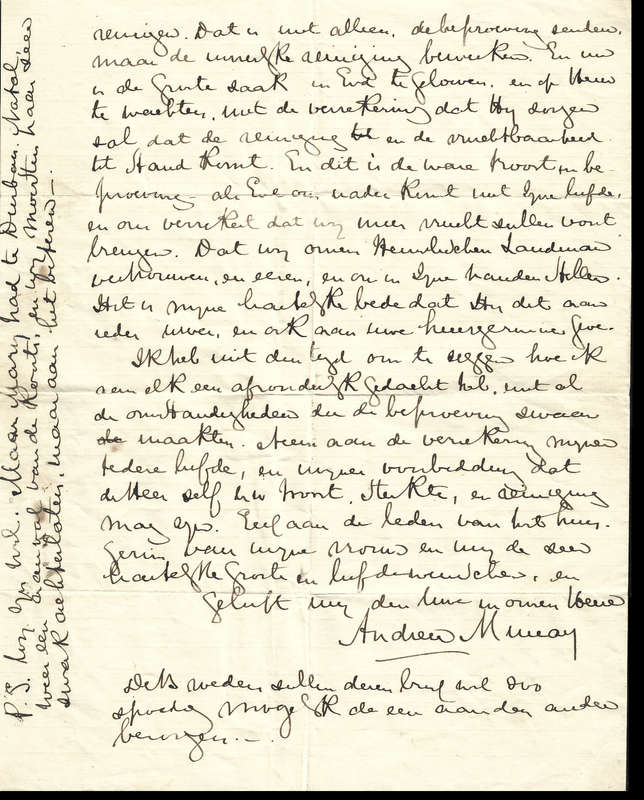 reinigen. Dat is niet alleen, de beproeving senden,
maar de innerlijke reiniging bewerken. En nu
is de Groote saak in God te gelooven, en op Hem
te wachten, met de verzekering dat Hij sorgen
sal dat de reiniging en de vruchtbaarheid
tot stand komt. En dit is de ware troost in be-
proeving als God ons nader komt met Zyne liefde,
en ons verzekert dat wy meer vrucht sullen voort
brengen. Dat wy onsen Hemelschen Landman
vertrouwen, en eeren, en ons in Zyne handen stellen.
Het is myne hartelyke bede dat Hy dit aan
ieder uwer, en ook aan uwe huisgezinnen geve.
Ik heb niet den tyd om te seggen hoe ik
aan elk een afzonderlyk gedacht heb, met al
de omstandigheden die de beproeving swaar
maakten. Neem aan de verzekering myner
tedere liefde, en myner voorbidding dat
de Heer self uw troost, sterkte, en reiniging
mag zyn. Geef aan de leden van het huis-
gezin van myne vrouw en my de seer
hartelyke groete en liefdewenschen, en
geloof my den Uwe in onsen Heere
Andrew Murray
De weder sullen desen brief wel soo
spoedig mogelyk de een aan den ander
besorgen.—
P.S. Wy zyn wel. Maar Mary had te Durban, Natal,
weer een aanval van de koorts, en wy moesten haar seer
swak achterlaten, maar aan het beteren—